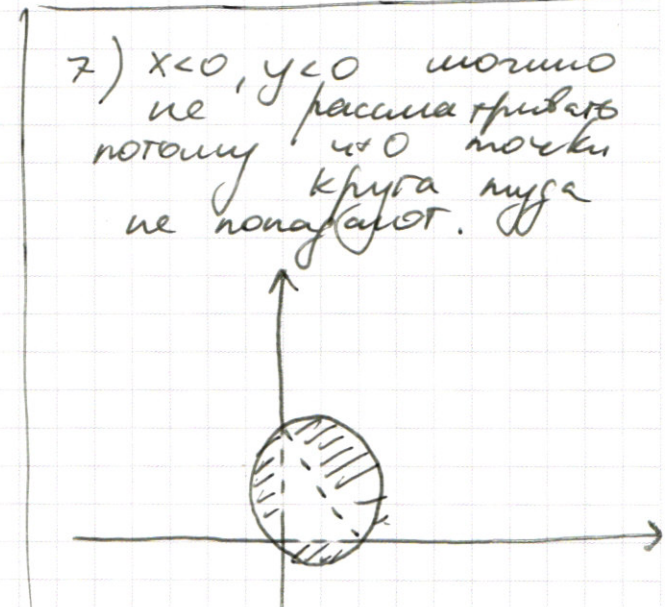 7) x<0, y<0 можно
не рассматривать
потому что точки
круга туда
не попадают.